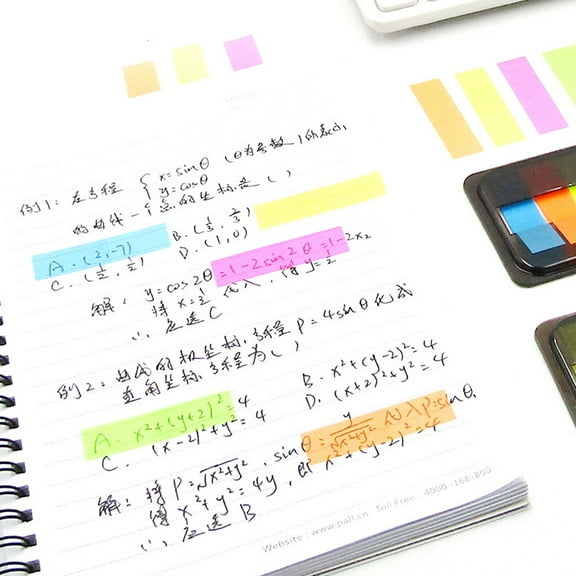 例1: 在方程 { x=sinθ (θ为参数)所表示
y=cosθ
的曲线一个点的坐标是( )
A.(2,-7) B.(1/3, 2/3)
C.(1/2, 1/2) D.(1,0)
解: y=cos2θ=1-2sin²θ=1-2x²
将 x=1/2 代入, 得 y=1/2
∴ 应选 C
例2: 曲线的极坐标方程 P=4sinθ化成
直角坐标方程为( )
A. x²+(y+2)²=4 B. x²+(y-2)²=4
C. (x-2)²+y²=4 D. (x+2)²+y²=4
解: 将 P=√x²+y², sinθ=y/√x²+y² 代入P=4sinθ,
得 x²+y²=4y, 即 x²+(y-2)²=4
∴ 应选 B
Website: www.pall.cn Toll Free: 4000-168-800